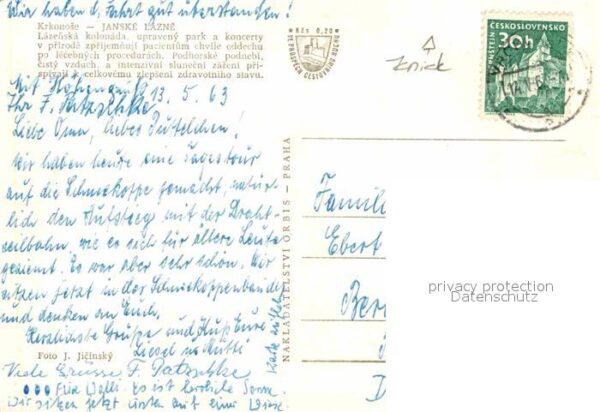 Wir haben d. Fahrt gut überstanden!
Krkonoše — JANSKÉ LÁZNĚ
Lázeňská kolonáda, upravený park a koncerty
v přírodě zpříjemňují pacientům chvíle oddechu
po léčebných procedurách. Podhorské podnebí,
čistý vzduch, a intenzivní sluneční záření při-
spívají k celkovému zlepšení zdravotního stavu.
Kčs 0,20
VE PROSPĚCH CESTOVNÍHO RUCHU
ČESKOSLOVENSKO
30h
PERNŠTEJN
Knick
Mit
13. 5. 63
Ihr F. Patzschke
Liebe Oma, liebes Puttelchen!
Wir haben heute eine Tagestour
auf die Schneekoppe gemacht natür-
lich den Aufstieg mit der Draht-
seilbahn, wie es sich für ältere Leute
geziemt. Es war aber sehr schön. Wir
sitzen jetzt in der Schneekoppenbaude
und denken an Euch.
Herzlichste Grüße und Kuß Eure
Liesel u. Mutti
Foto J. Jičínský
Viele Grüsse F. Patzschke
Es ist herrliche Sonne.
Wir sitzen jetzt unten auf einer Wiese
Karte aufheben
NAKLADATELSTVÍ ORBIS — PRAHA
Famili
Ebert
Ber
D
privacy protection
Datenschutz